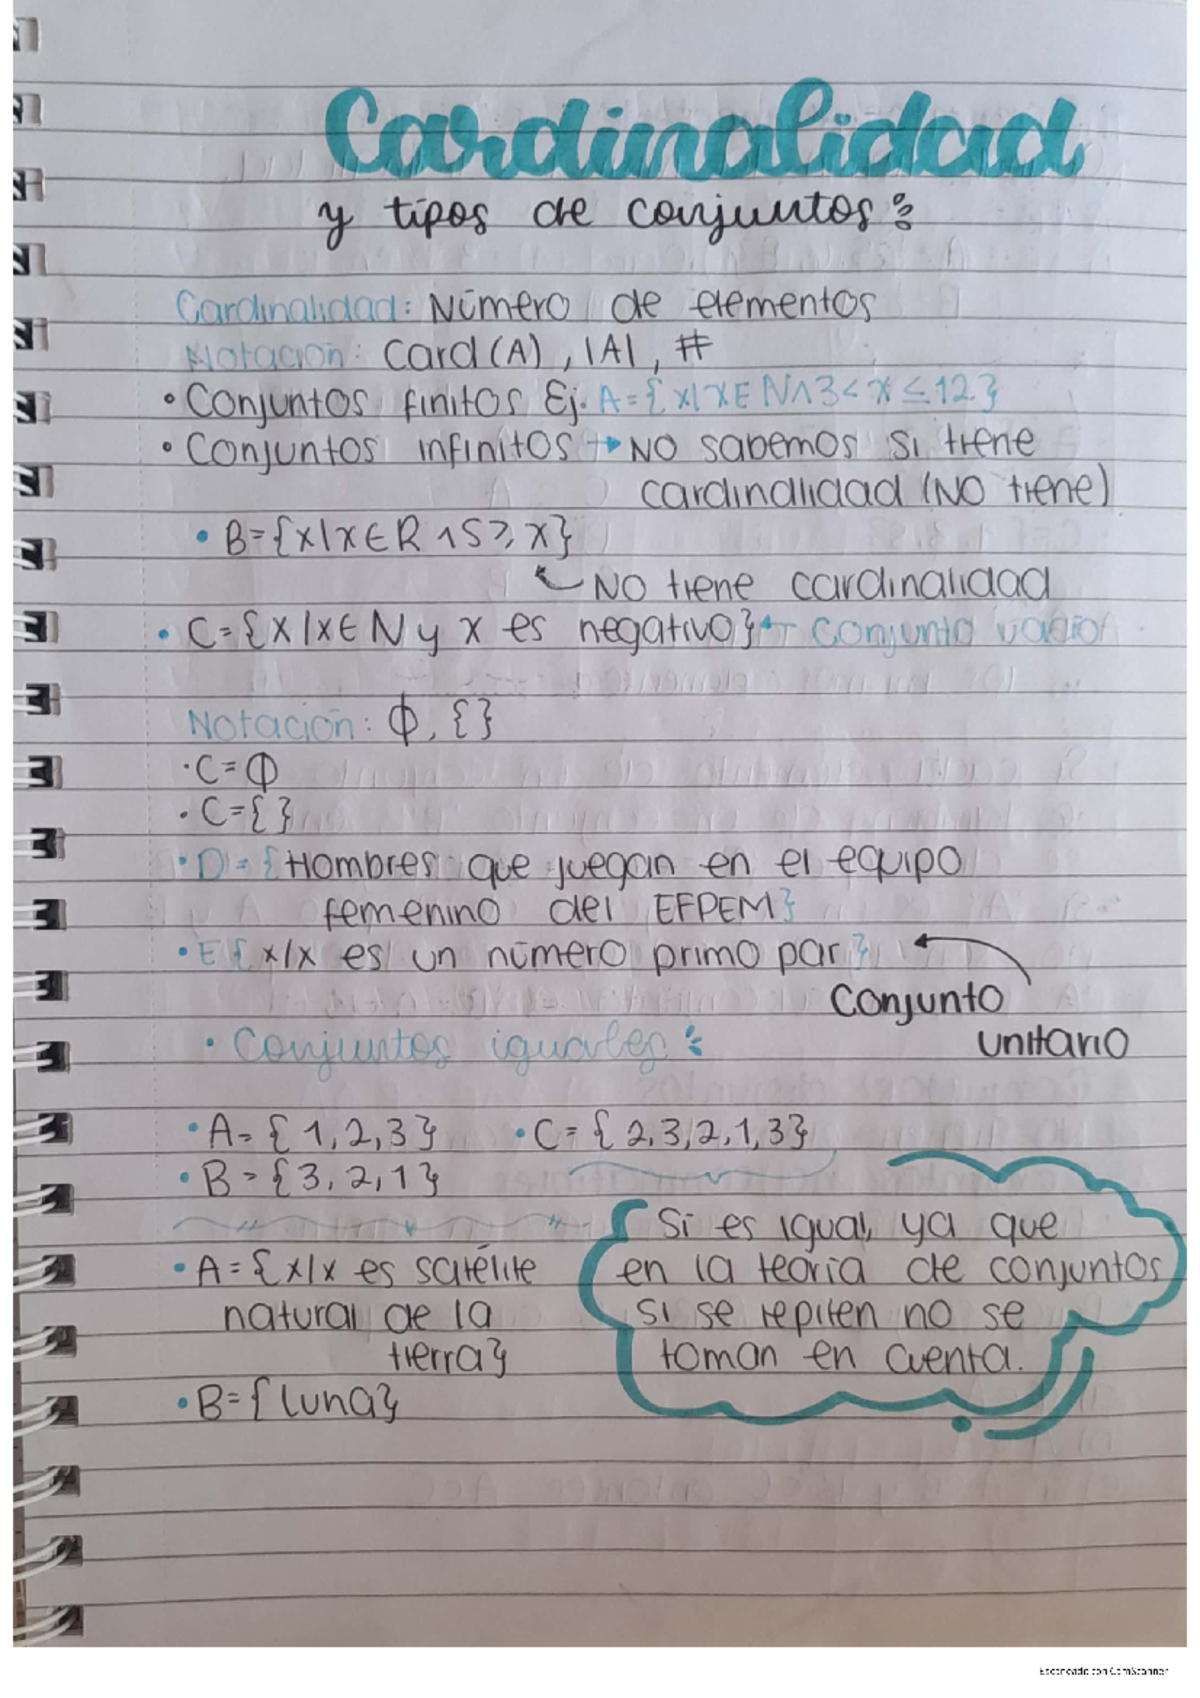 Cardinalidad
y tipos de conjuntos:
Cardinalidad: Número de elementos
Notación: Card(A), |A|, #
• Conjuntos finitos Ej. A={x|x∈N∧3<x≤12}
• Conjuntos infinitos → NO sabemos si tiene
cardinalidad (NO tiene)
• B={x|x∈R ∧5≥x}
NO tiene cardinalidad
• C={x|x∈N y x es negativo} ← conjunto vacío
Notación: Φ, {}
• C=Φ
• C={}
• D={Hombres que juegan en el equipo
femenino del EFPEM}
• E{x/x es un número primo par}
Conjunto
unitario
• Conjuntos iguales:
• A={1,2,3} • C={2,3,2,1,3}
• B={3,2,1}
Si es igual, ya que
en la teoría de conjuntos
si se repiten no se
toman en cuenta.
• A={x|x es satélite
natural de la
tierra}
• B={luna}
Escaneado con CamScanner